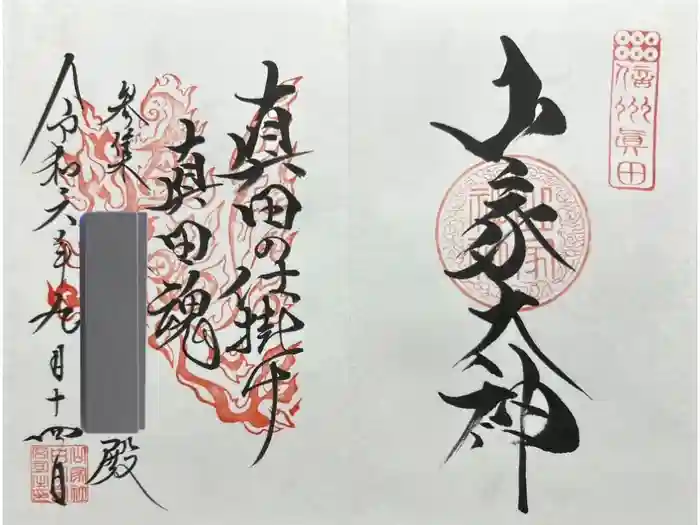 信州眞田
山家大神
真田の仕掛け
真田魂
参集
殿
令和六年九月十四日